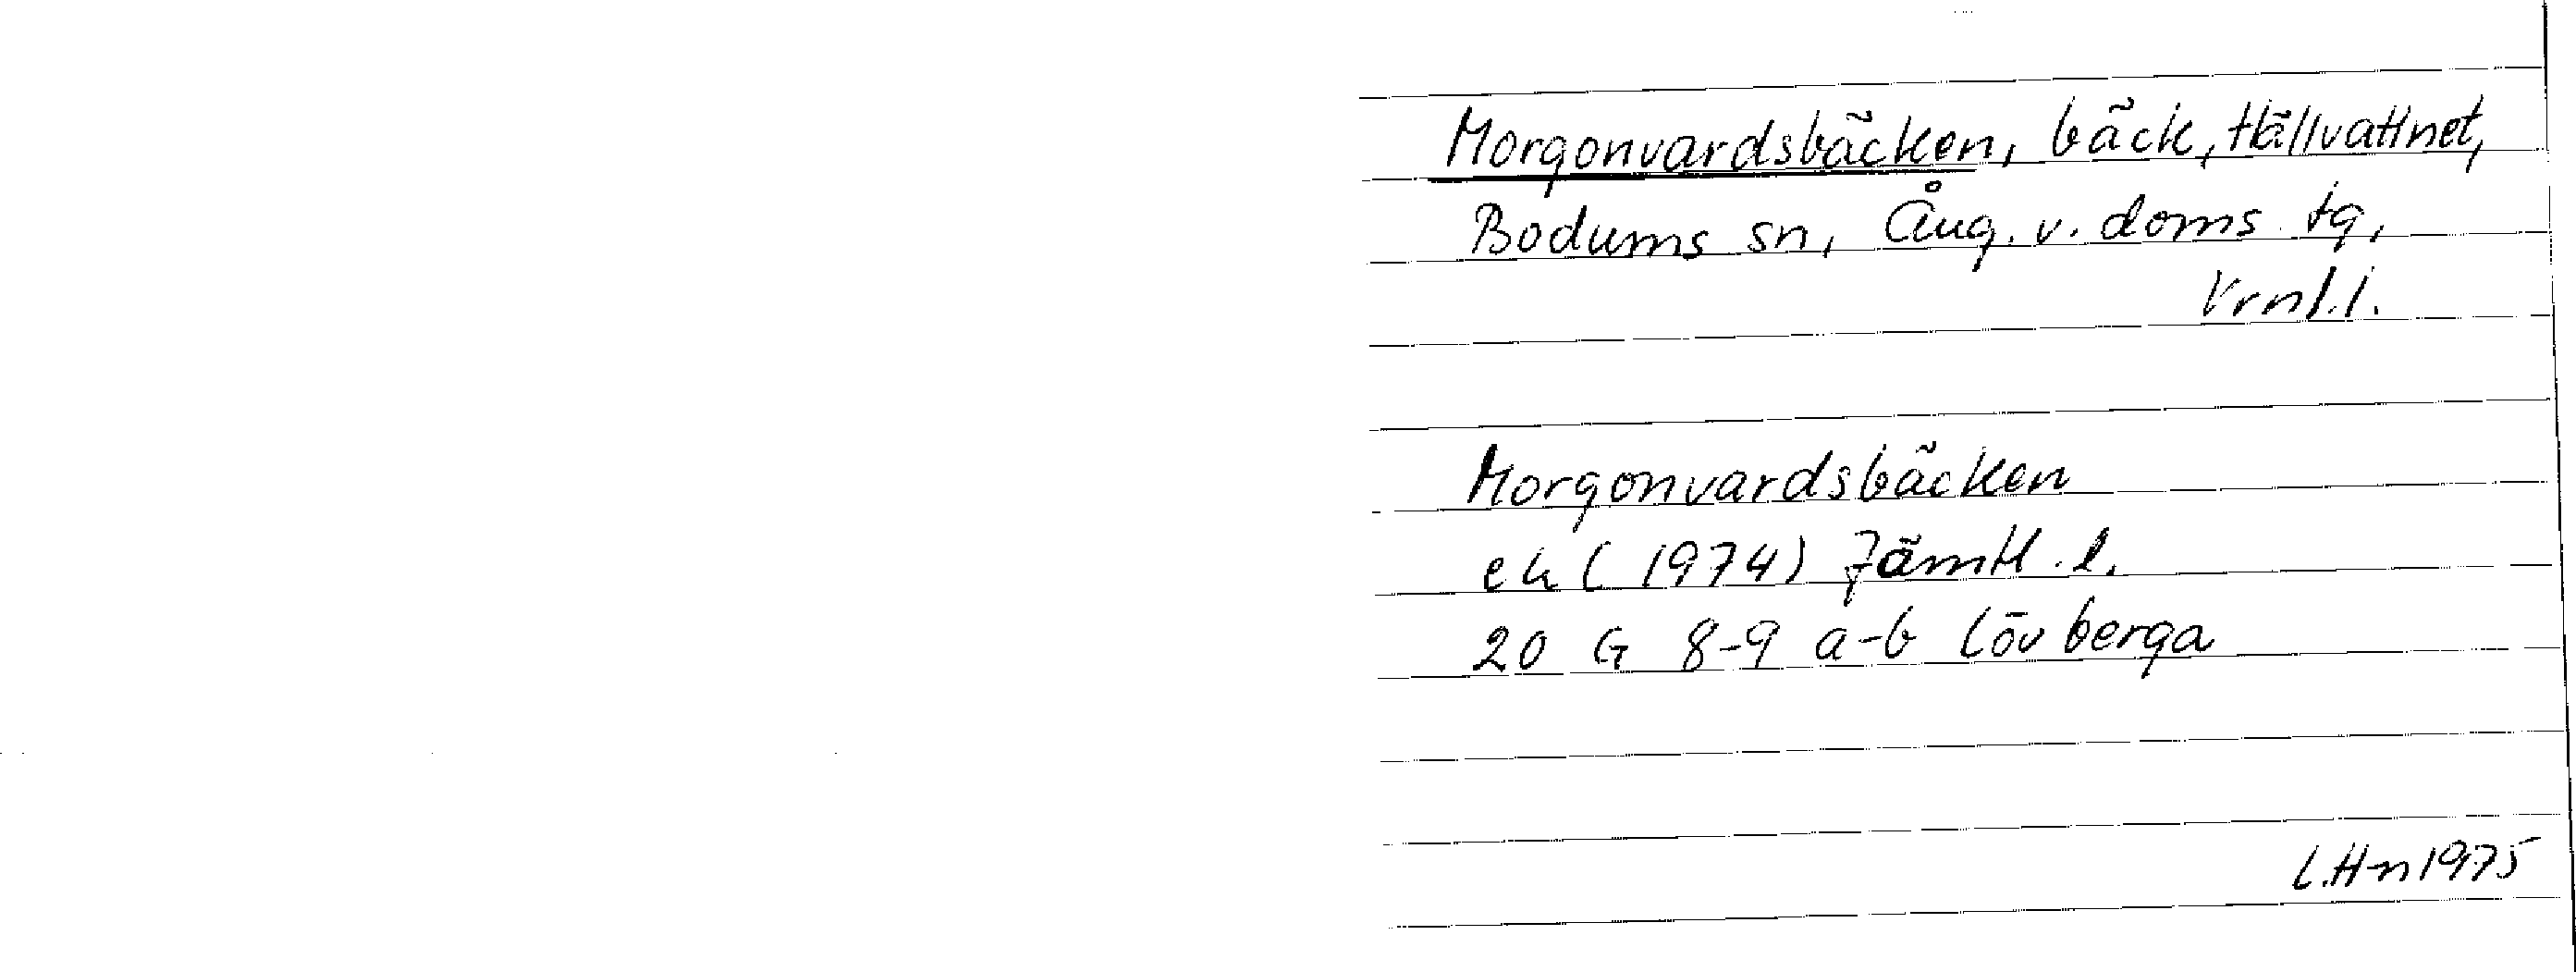 Morgonvardsbäcken, bäck, Hällvattnet,
Bodums sn, Ång. v. doms tg,
Vrnl.l.
Morgonvardsbäcken
ek (1974) Jämtl. l.
20 G 8-9 a-b Lövberga
L.H-n 1975